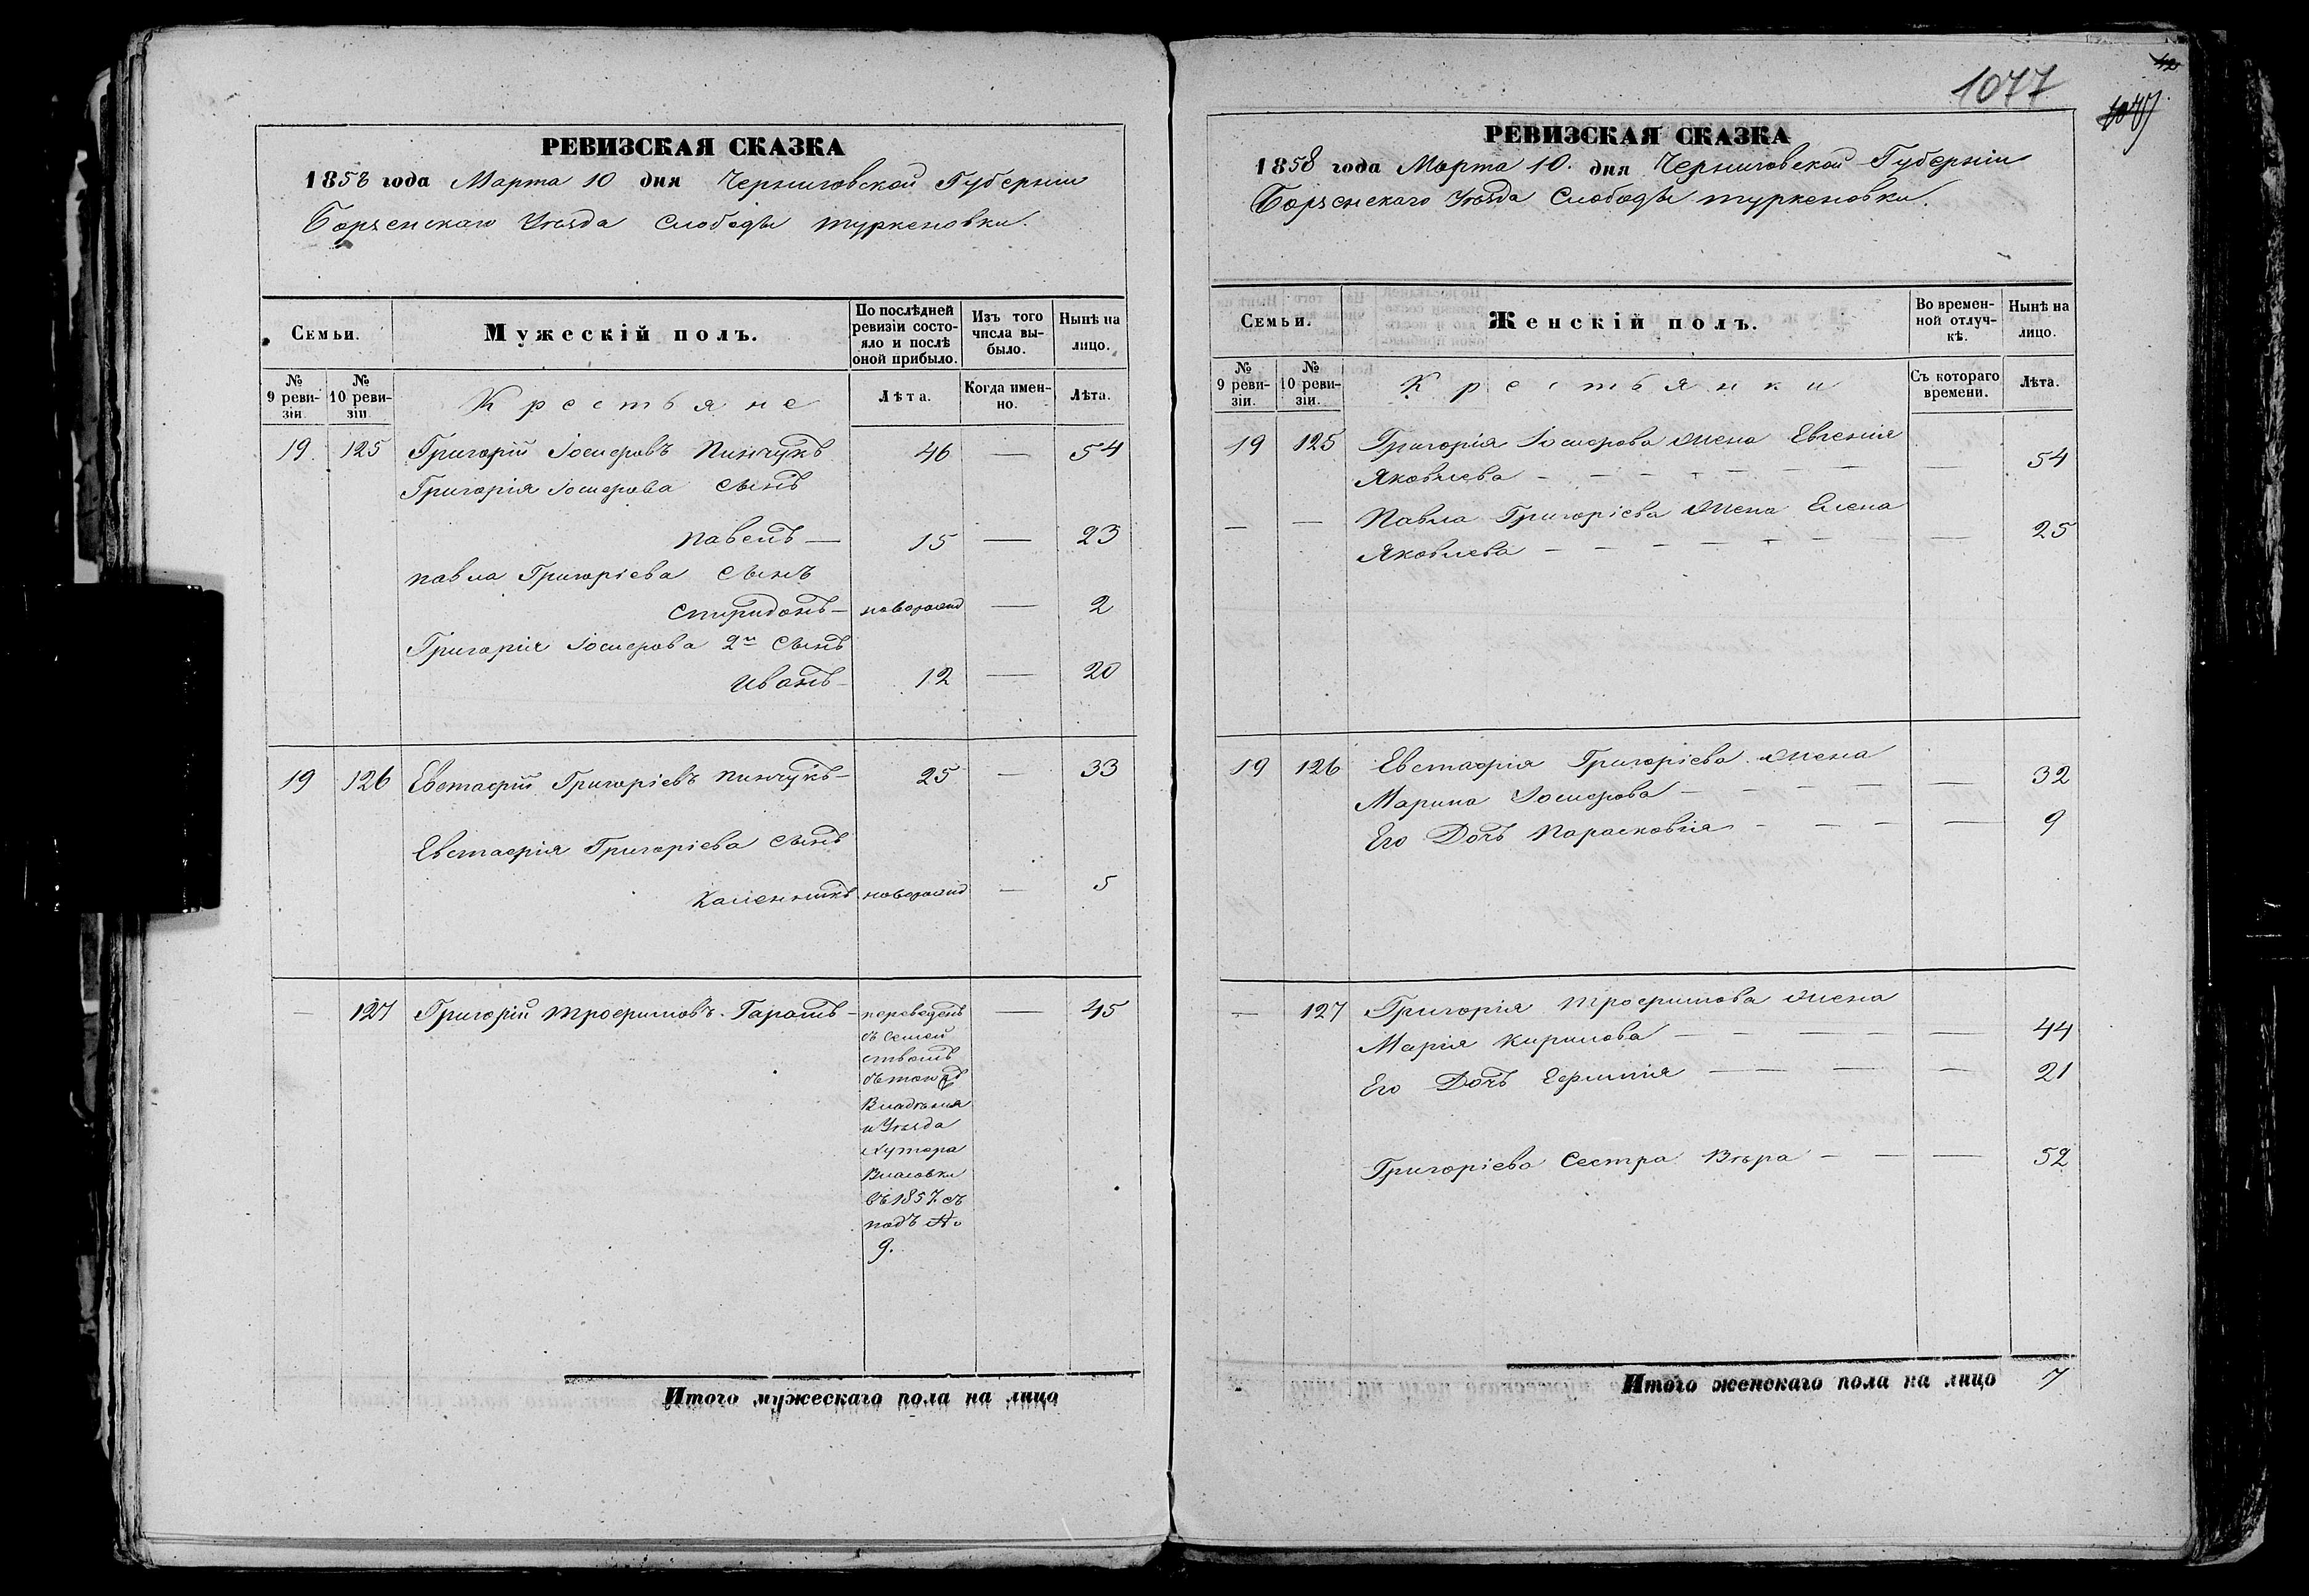 РЕВИЗСКАЯ СКАЗКА
1858 года Марта 10 дня Черниговской Губерніи
Борзенскаго Уѣзда Слободы туркеновки.
Семьи.
Мужескій полъ.
По послѣдней ревизіи состояло и послѣ оной прибыло.
Изъ того числа выбыло.
Нынѣ на лицо.
№ 9 ревизіи.
№ 10 ревизіи.
Крестьяне
Лѣта.
Когда именно.
Лѣта.
19 125 Григорій Іосифовъ Пинчукъ 46 — 54
Григорія Іосифова сынъ
павелъ — 15 — 23
павла Григоріева сынъ
Спиридонъ — новорожд — 2
Григорія Іосифова 2й сынъ
Иванъ — 12 — 20
19 126 Евстафій Григоріевъ пинчукъ — 25 — 33
Евстафія Григоріева сынъ
Каленникъ новорожд — 5
— 127 Григорій трофимовъ Гарашъ — переведенъ — 45
съ семей
ствомъ
Владѣнія
и Уѣзда
хутора
Власовки
въ 1857 съ
подъ №
9.
Итого мужескаго пола на лицо
1077
42
1077
РЕВИЗСКАЯ СКАЗКА
1858 года Марта 10. дня Черниговской Губерніи
Борзенскаго Уѣзда Слободы туркеновки.
Семьи.
Женскій полъ.
Во временной отлучкѣ.
Нынѣ на лицо.
№ 9 ревизіи.
№ 10 ревизіи.
Крестьянки
Съ котораго времени.
Лѣта.
19 125 Григорія Іосифова жена Евгенія
Яковлева — — 54
— — Павла Григоріева жена Елена
Яковлева — — 25
19 126 Евстафія Григоріева жена
Марина Іосифова — — 32
Его Дочь Парасковія — — 9
— 127 Григорія трофимова жена
Марія Кирилова — — 44
Его Дочь Ефимія — — 21
Григоріева Сестра Вѣра — — 52
Итого женскаго пола на лицо 7